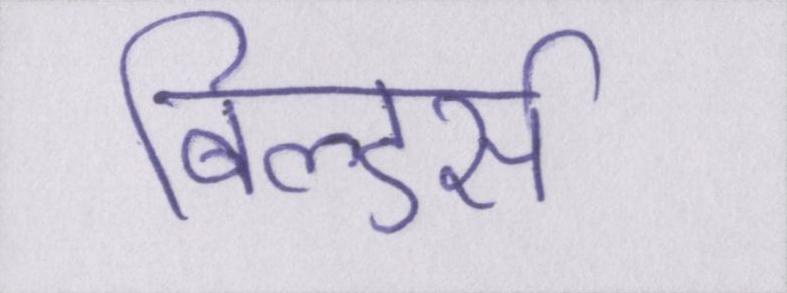 बिल्डर्स